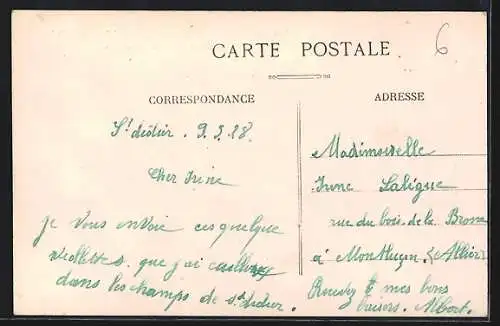 CARTE POSTALE
6
CORRESPONDANCE
St didier . 9.3.28.
Cher Irène
je vous envoie ces quelque
viollettes que j'ai
dans les champs de st didier.
ADRESSE
Mademoiselle
Irène Laligue
rue du bois de la Brosse
à Montluçon (Allier)
Recevez mes bons
baisers. Albert.